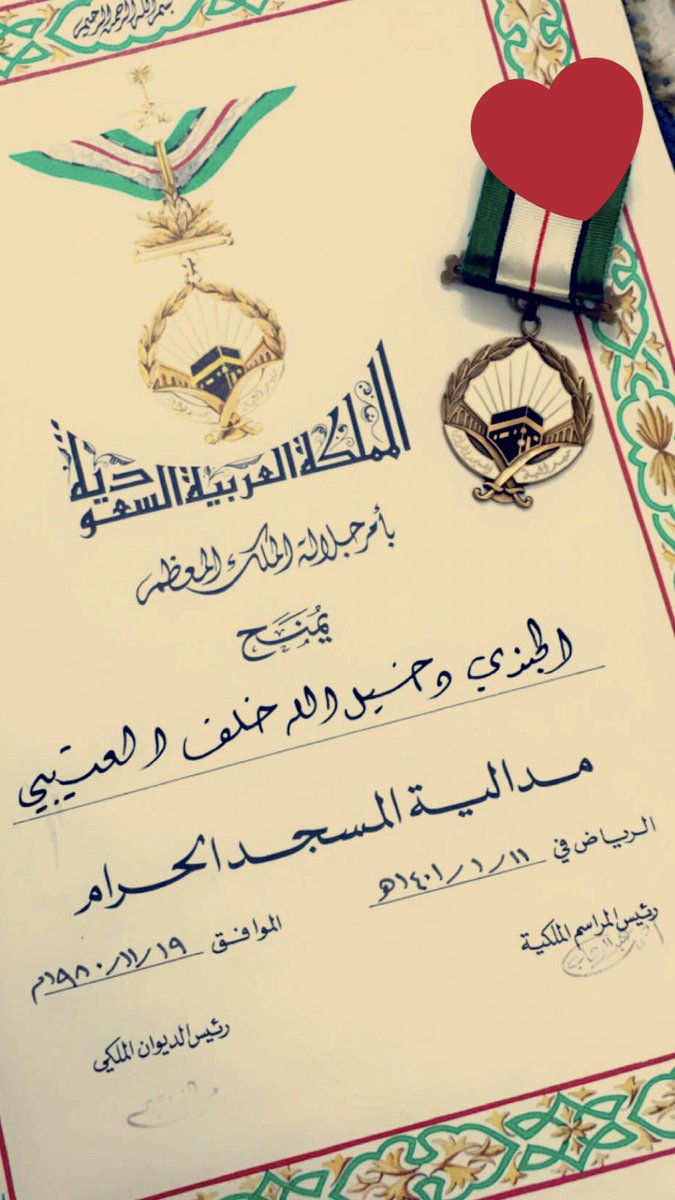 بسم الله الرحمن الرحيم
المملكة العربية السعودية
بأمر جلالة الملك المعظم
يُمنَح
الجندي دخيل الله خلف العتيبي
مدالية المسجد الحرام
الرياض في ١٤٠١/١/١١هـ
الموافق ١٩٨٠/١١/١٩م
رئيس المراسم الملكية
رئيس الديوان الملكي